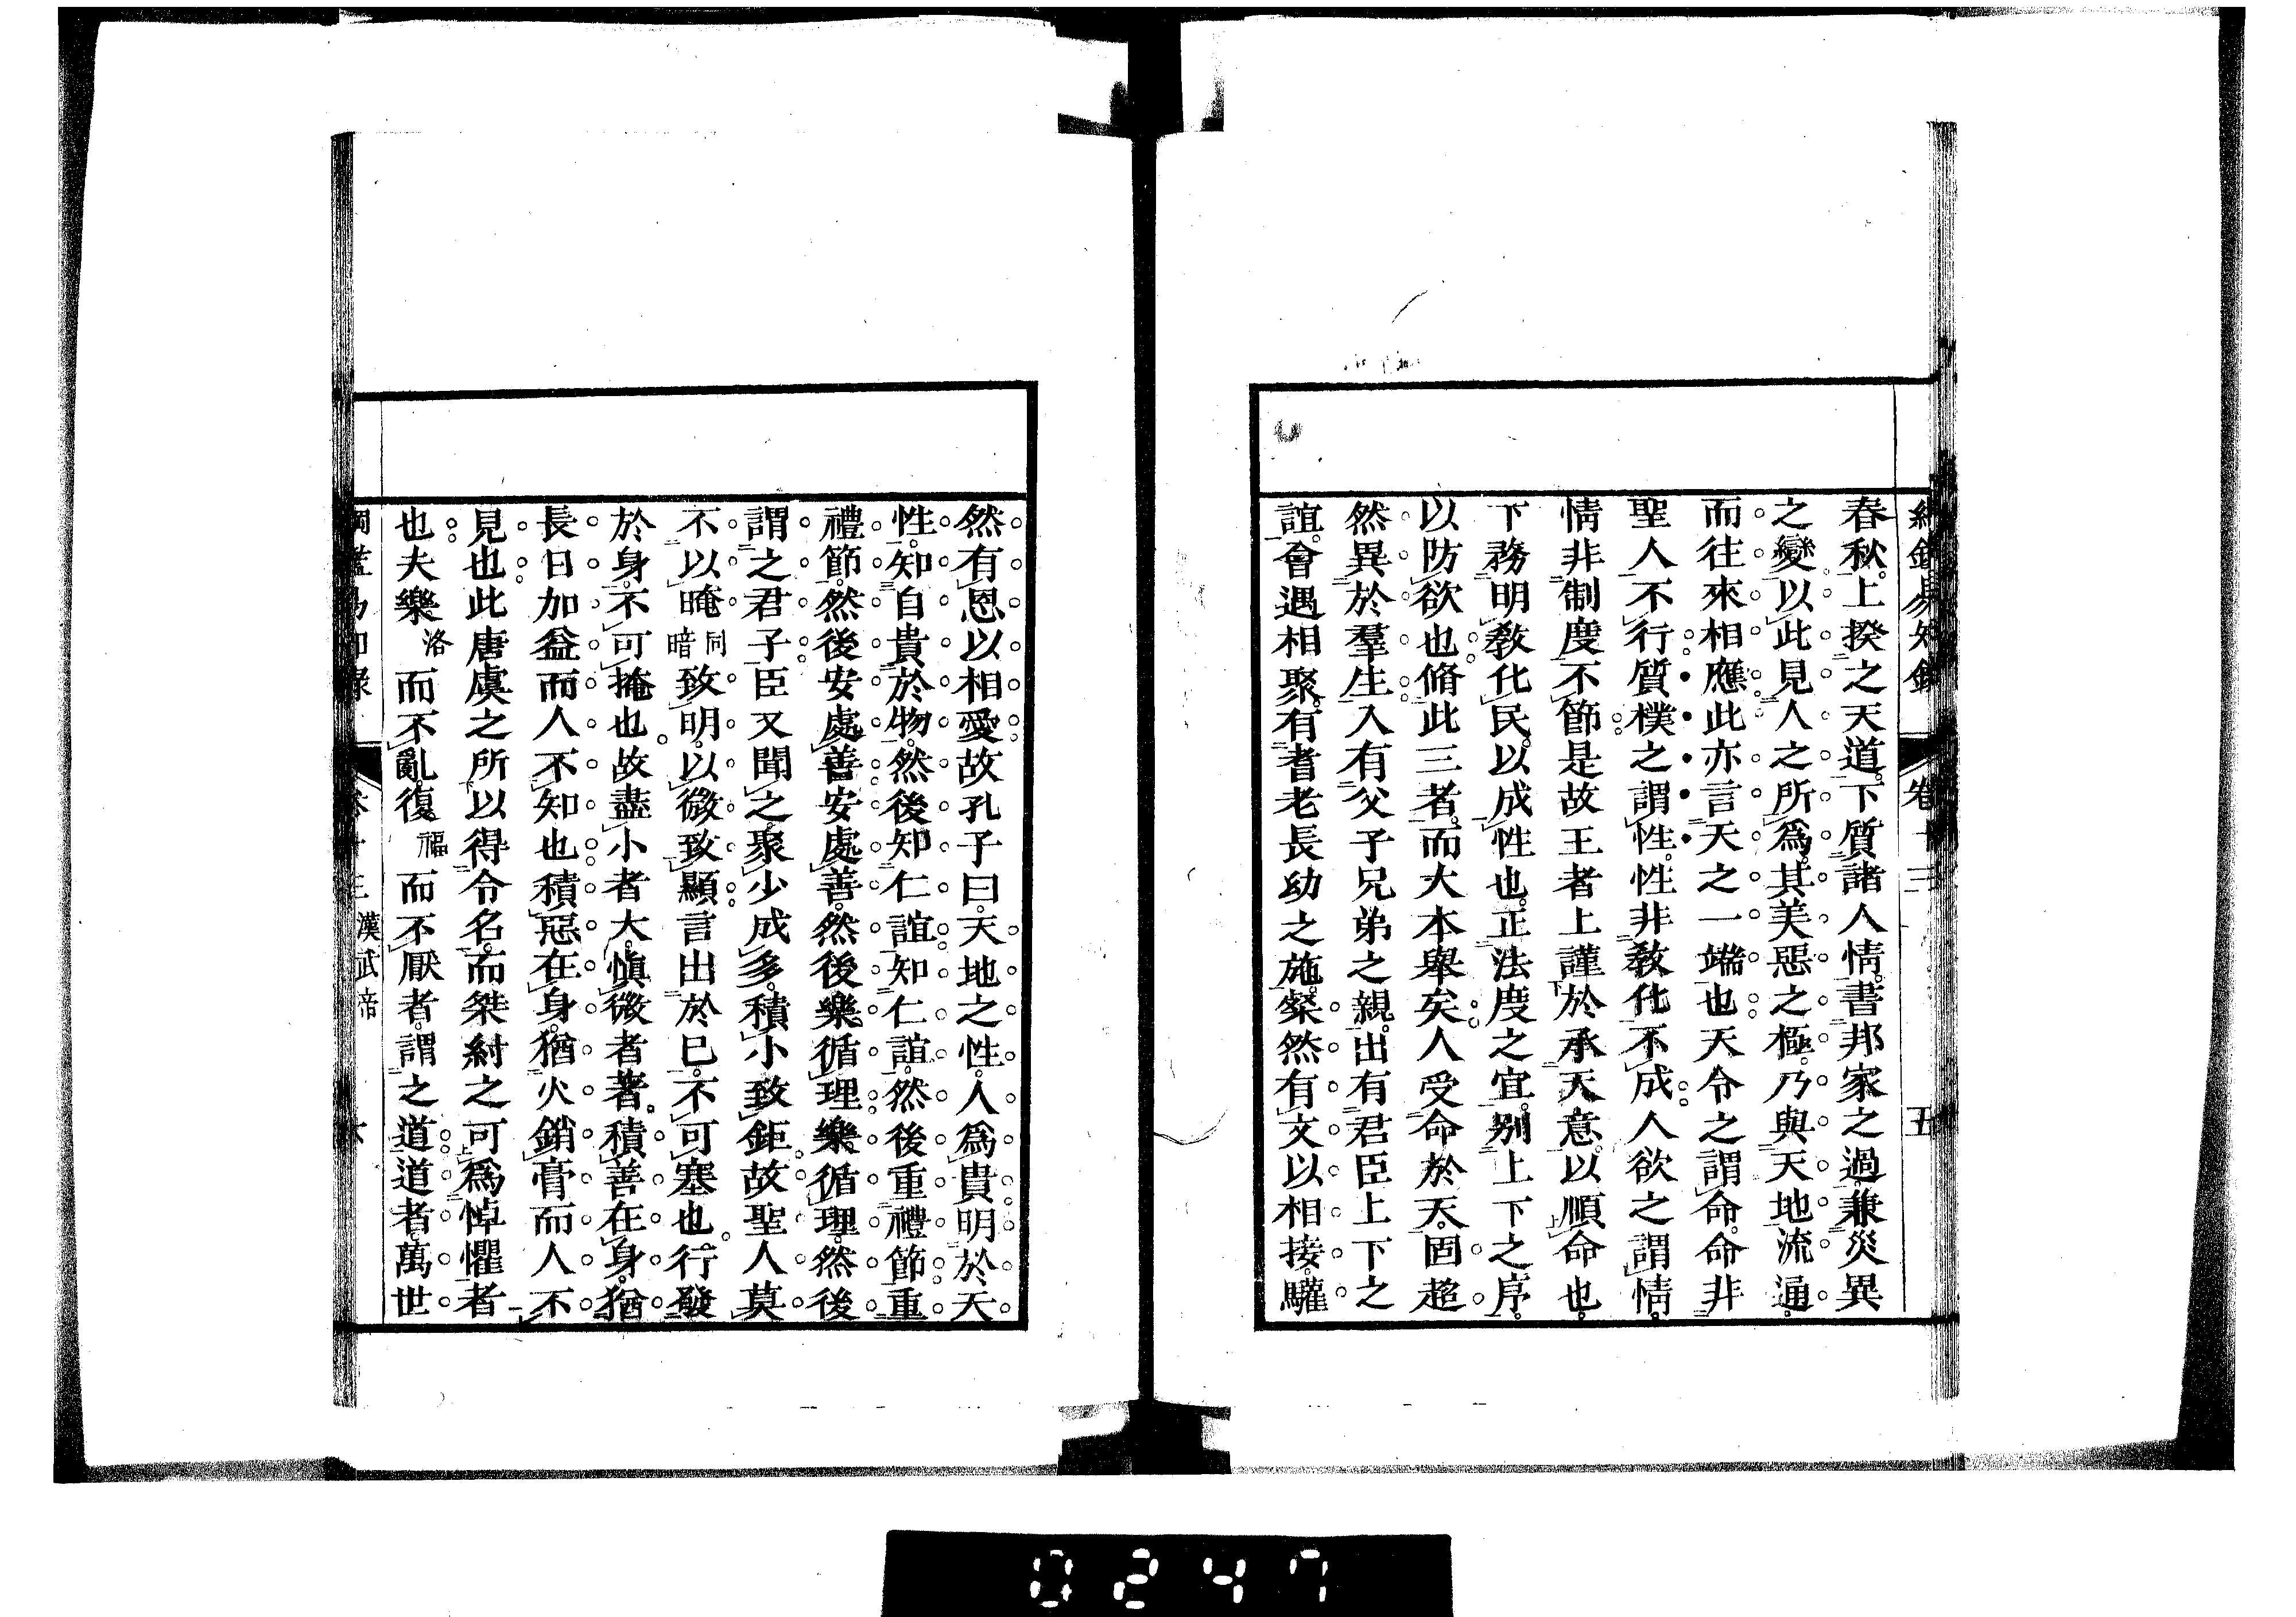 春秋上揆之天道下質諸人情書邦家之過兼災異
之變以此見人之所爲其美惡之極乃與天地流通
而往來相應此亦言天之一端也天令之謂命命非
聖人不行質樸之謂性性非敎化不成人欲之謂情
情非制度不節是故王者上謹於承天意以順命也
下務明敎化民以成性也正法度之宜别上下之序
以防欲也脩此三者而大本舉矣人受命於天固超
然異於羣生入有父子兄弟之親出有君臣上下之
誼會遇相聚有耆老長幼之施粲然有文以相接驩
然有恩以相愛故孔子曰天地之性人爲貴明於天
性知自貴於物然後知仁誼知仁誼然後重禮節重
禮節然後安處善安處善然後樂循理樂循理然後
謂之君子臣又聞之聚少成多積小致鉅故聖人莫
不以晻同暗致明以微致顯言出於已不可塞也行發
於身不可掩也故盡小者大愼微者著積善在身猶
長日加益而人不知也積惡在身猶火銷膏而人不
見也此唐虞之所以得令名而桀紂之可爲悼懼者
也夫樂洛而不亂復福而不厭者謂之道道者萬世
卷十三 漢武帝
0247